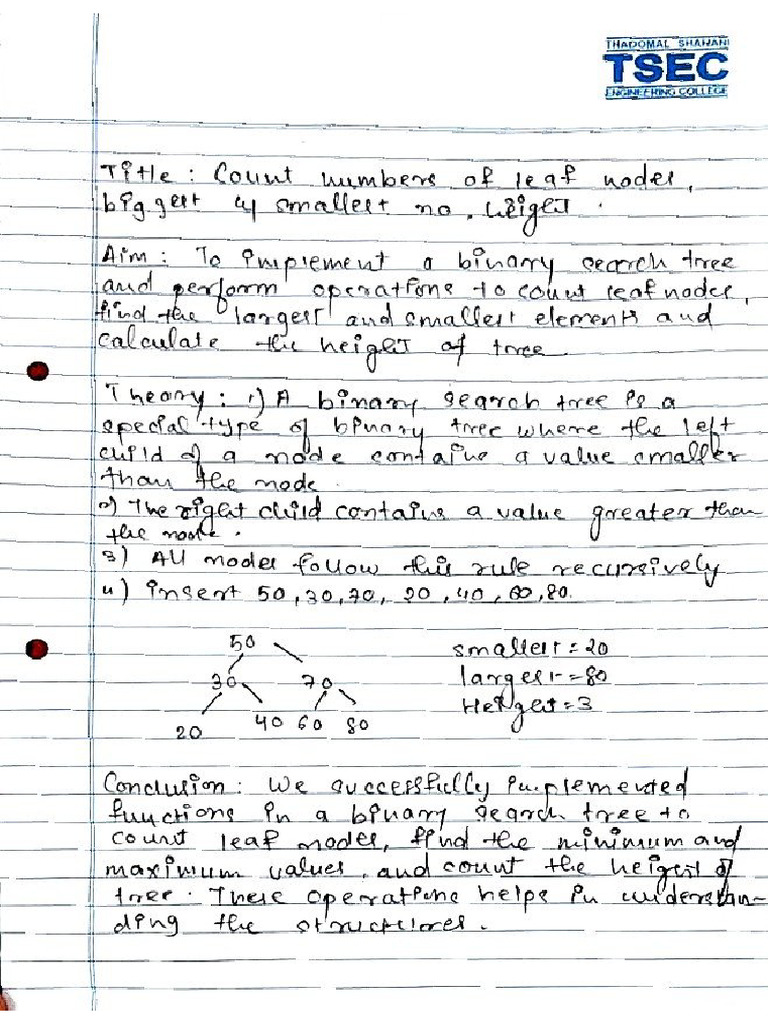 THADOMAL SHAHANI
TSEC
ENGINEERING COLLEGE
Title : Count numbers of leaf nodes,
biggest & smallest no, height.
Aim : To implement a binary search tree
and perform operations to count leaf nodes,
find the largest and smallest elements and
calculate the height of tree.
Theory : 1) A binary search tree is a
special type of binary tree where the left
child of a node contains a value smaller
than the node.
2) The right child contains a value greater than
the node.
3) All nodes follow this rule recursively
4) insert 50, 30, 70, 20, 40, 60, 80.
50
30 70
20 40 60 80
smallest = 20
largest = 80
Height = 3
Conclusion : We successfully implemented
functions in a binary search tree to
count leaf nodes, find the minimum and
maximum values, and count the height of
tree. These operations helps in understan-
ding the structures.